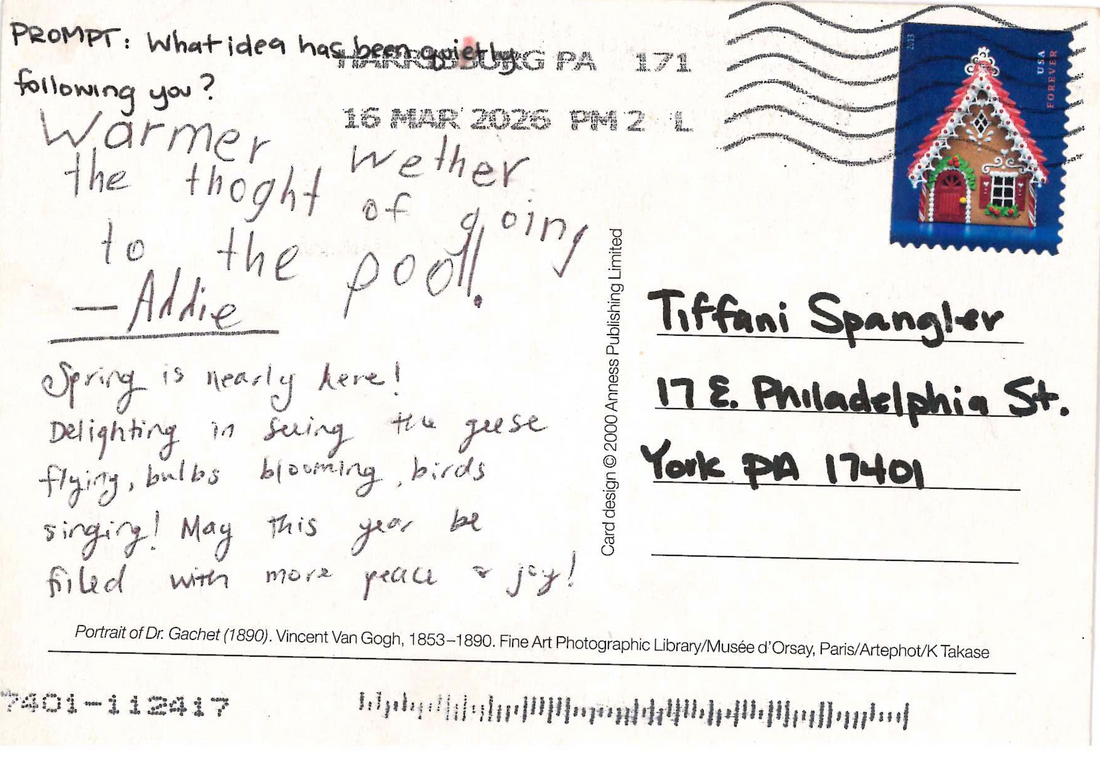 PROMPT: What idea has been quietly
following you?
HARRISBURG PA 171
16 MAR 2026 PM 2 L
2013
USA
FOREVER
Warmer wether
the thoght of going
to the pool.
—Addie
Spring is nearly here!
Delighting in seeing the geese
flying, bulbs blooming, birds
singing! May this year be
filled with more peace & joy!
Card design © 2000 Anness Publishing Limited
Tiffani Spangler
17 E. Philadelphia St.
York PA 17401
Portrait of Dr. Gachet (1890). Vincent Van Gogh, 1853–1890. Fine Art Photographic Library/Musée d'Orsay, Paris/Artephot/K Takase
7401-112417